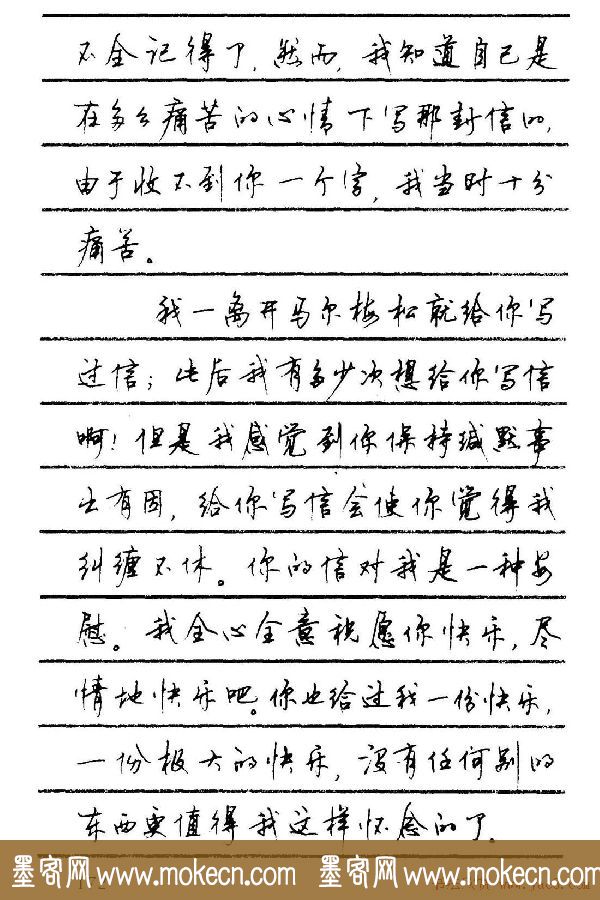 不全记得了，然而，我知道自己是
在多么痛苦的心情下写那封信的，
由于收不到你一个字，我当时十分
痛苦。
我一离开马尔梅松就给你写
过信；此后我有多少次想给你写信
啊！但是我感觉到你保持缄默事
出有因，给你写信会使你觉得我
纠缠不休。你的信对我是一种安
慰。我全心全意祝愿你快乐，尽
情地快乐吧。你也给过我一份快乐，
一份极大的快乐，没有任何别的
东西更值得我这样怀念的了。
墨客网 www.mokecn.com 墨客网 www.mokecn.com